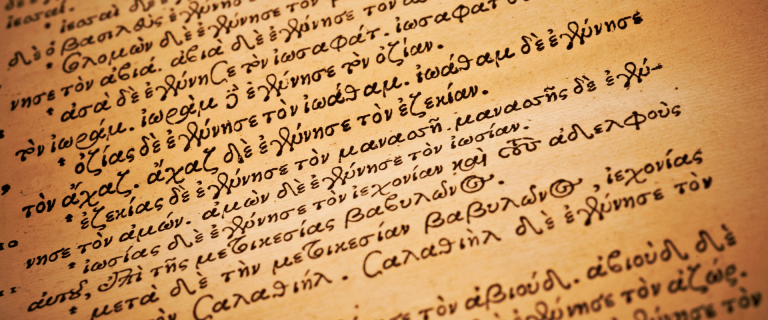 ἰεσσαί.
ἰεσσαὶ δὲ ἐγέννησε τὸν
δὲ ὁ βασιλεὺς ἐγέννησε
σολομὼν δὲ ἐγέννησε τὸν
νησε τὸν ἀβιά. ἀβιὰ δὲ ἐγέννησε τὸν ἀσά.
ἀσὰ δὲ ἐγέννησε τὸν ἰωσαφάτ. ἰωσαφὰτ δὲ
τὸν ἰωράμ. ἰωρὰμ δὲ ἐγέννησε τὸν ὀζίαν.
ὀζίας δὲ ἐγέννησε τὸν ἰωάθαμ. ἰωάθαμ δὲ ἐγέννησε
τὸν ἄχαζ. ἄχαζ δὲ ἐγέννησε τὸν ἐζεκίαν.
ἐζεκίας δὲ ἐγέννησε τὸν μανασσῆ. μανασσῆς δὲ ἐγέν-
νησε τὸν ἀμών. ἀμὼν δὲ ἐγέννησε τὸν ἰωσίαν.
ἰωσίας δὲ ἐγέννησε τὸν ἰεχονίαν καὶ τοὺς ἀδελφοὺς
αὐτοῦ, ἐπὶ τῆς μετοικεσίας βαβυλῶνος.
μετὰ δὲ τὴν μετοικεσίαν βαβυλῶνος, ἰεχονίας
τὸν Σαλαθιήλ. Σαλαθιὴλ δὲ ἐγέννησε τὸν
τὸν ἀβιούδ. ἀβιοὺδ δὲ
ἐγέννησε τὸν ἀζώρ.
τὸν